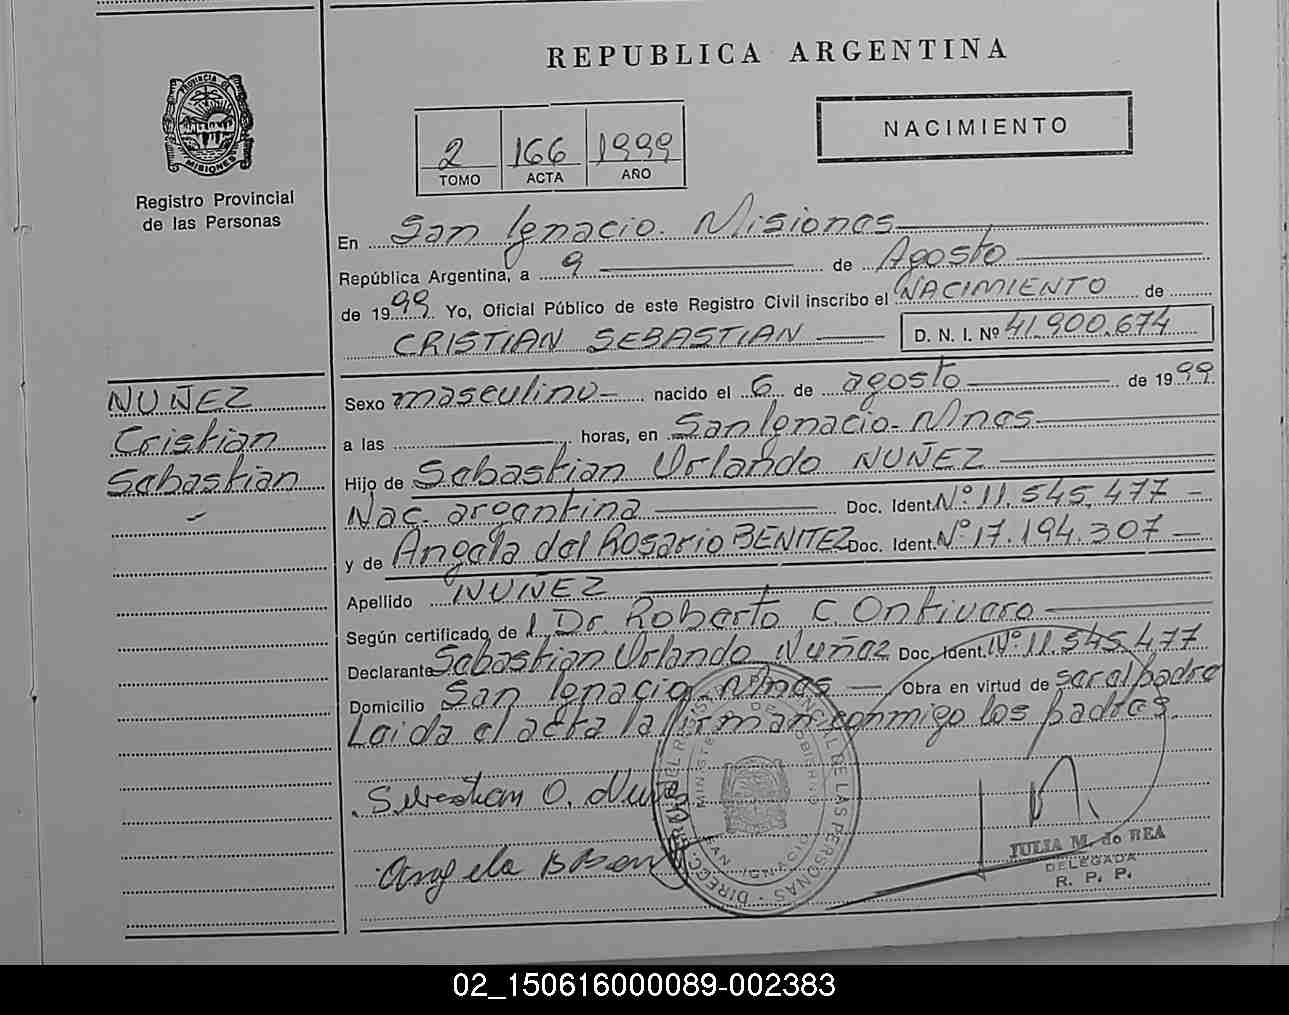 REPUBLICA ARGENTINA
PROVINCIA DE
MISIONES
Registro Provincial
de las Personas
2 166 1999
TOMO ACTA AÑO
NACIMIENTO
En San Ignacio. Misiones
República Argentina, a 9 de Agosto
de 1999 Yo, Oficial Público de este Registro Civil inscribo el NACIMIENTO de
CRISTIAN SEBASTIAN D. N. I. Nº 41.900.674
NUÑEZ
Cristian
Sebastian
Sexo masculino nacido el 6 de agosto de 1999
a las horas, en San Ignacio-Mnes
Hijo de Sebastian Orlando NUÑEZ
Nac. argentina Doc. Ident. Nº 11.545.477
y de Angela del Rosario BENITEZ Doc. Ident. Nº 17.194.307
Apellido NUÑEZ
Según certificado de l Dr. Roberto C. Ontivero
Declarante Sebastian Orlando Nuñez Doc. Ident. Nº 11.545.477
Domicilio San Ignacio-Mnes Obra en virtud de ser el padre
Leida el acta la firman conmigo los padres.
Sebastian O. Nuñez
Angela B
MINISTERIO DE GOBIERNO
SAN IGNACIO
JULIA M. de REA
DELEGADA
R. P. P.
02_150616000089-002383